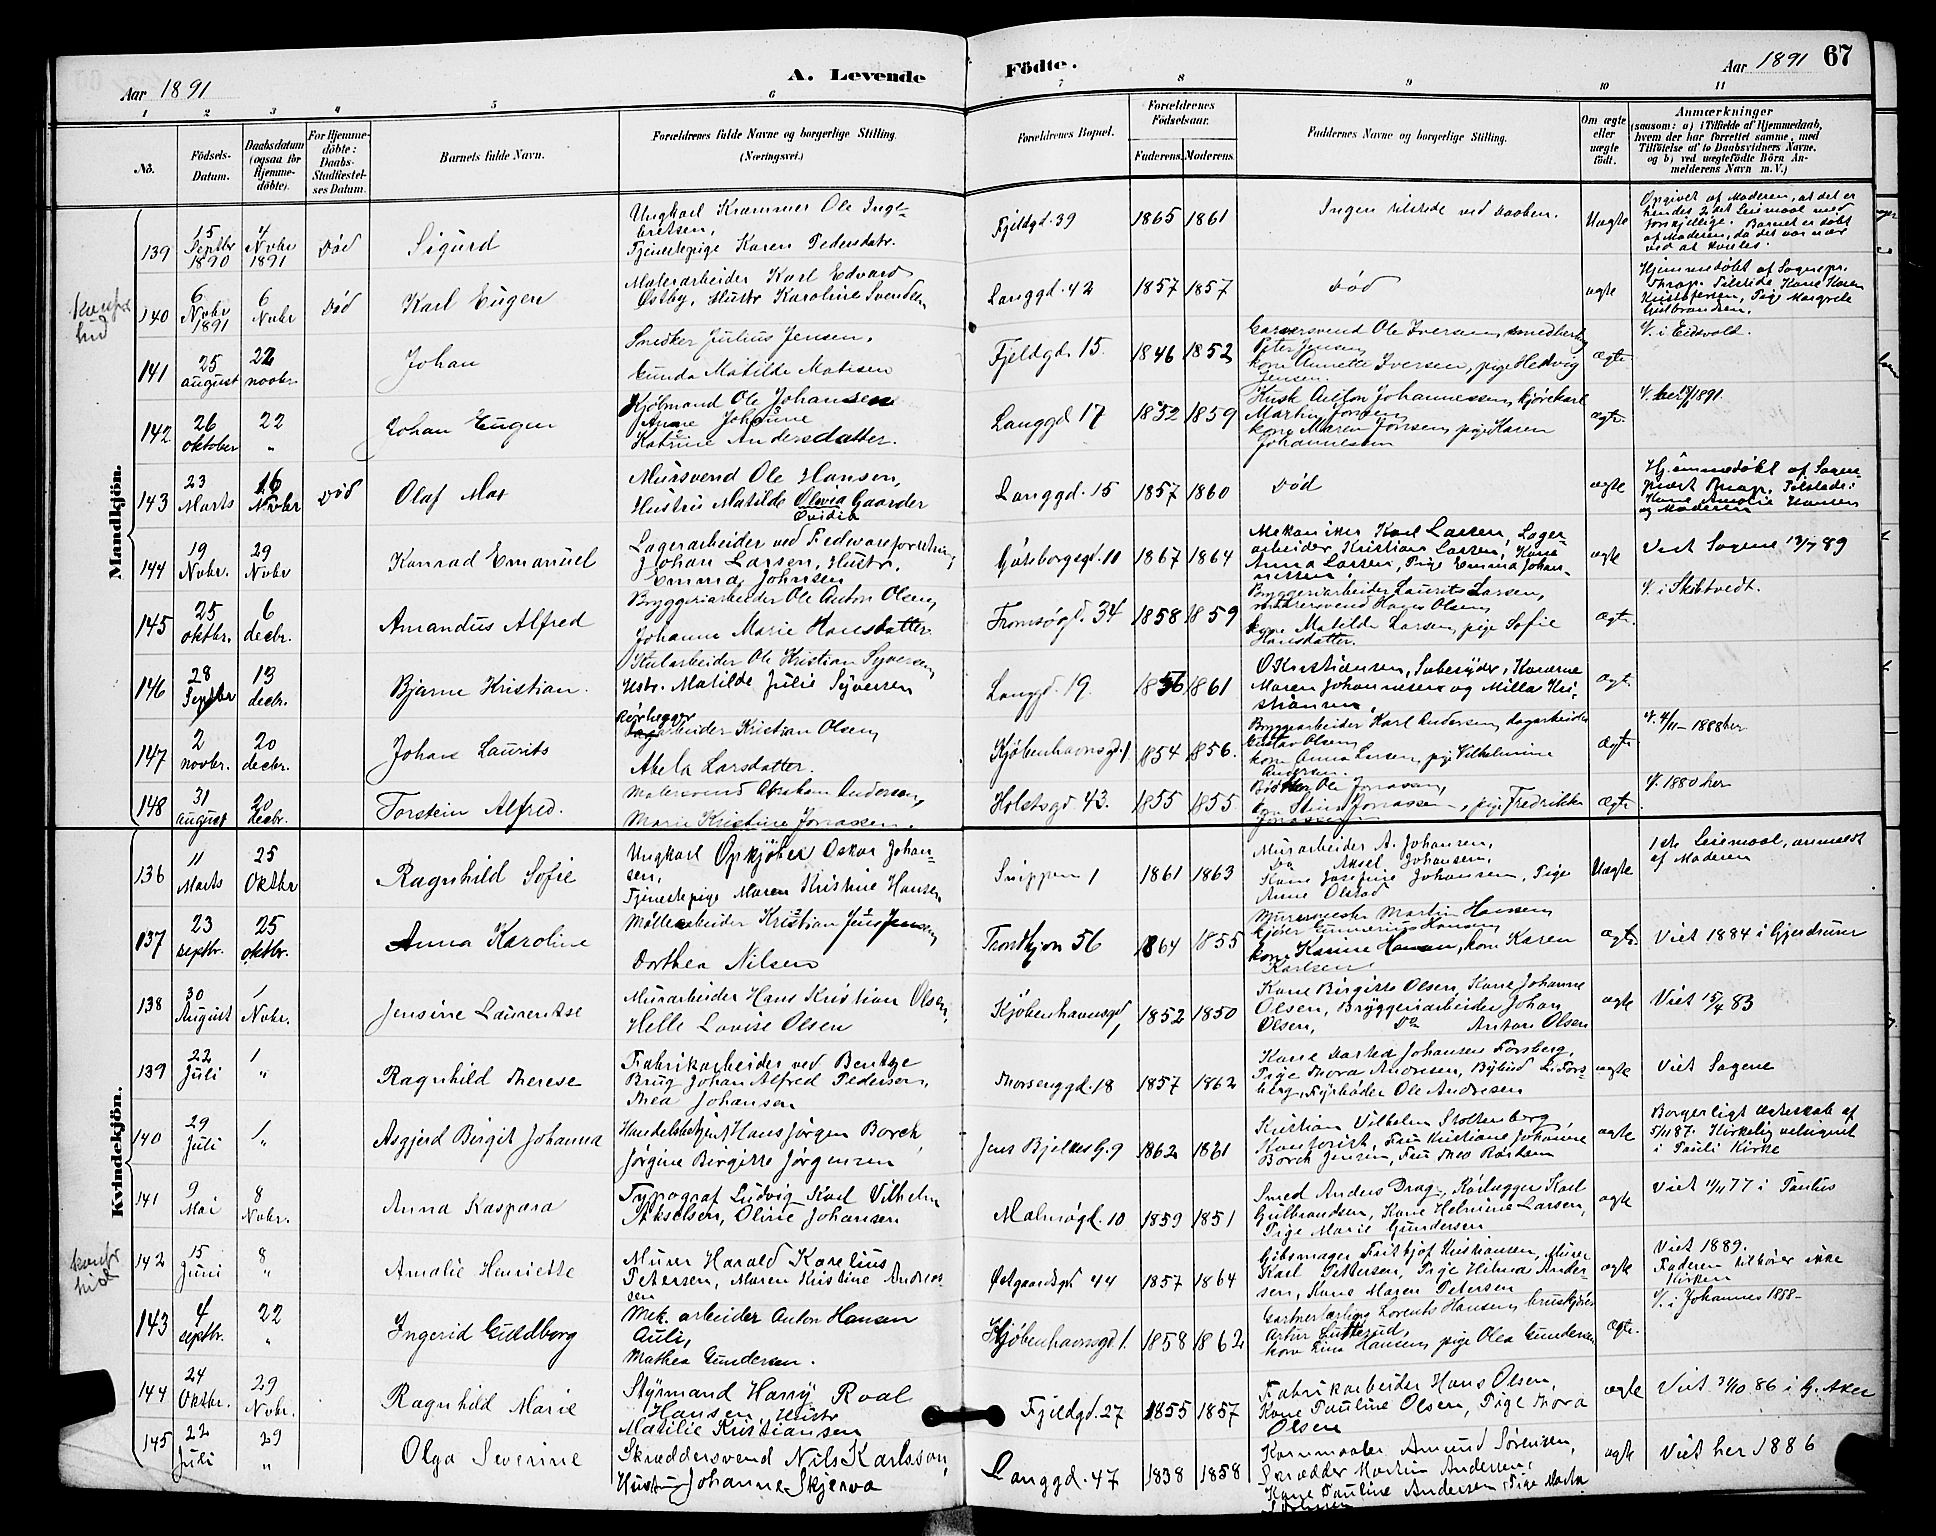 Aar 1891
A. Levende
Födte.
Aar 1891
67
1 2 3 4 5 6 7 8 9 10 11
No.
Födsels-Datum.
Daabsdatum (ogsaa for Hjemme-döbte).
For Hjemme-döbte: Daabs-Stadfæstel-ses Datum.
Barnets fulde Navn.
Forældrenes fulde Navne og borgerlige Stilling.
(Næringsvei.)
Forældrenes Bopæl.
Forældrenes Födselsaar.
Faderens. Moderens.
Faddernes Navne og borgerlige Stilling.
Om ægte eller uægte födt.
Anmærkninger
(saasom: a) i Tilfælde af Hjemmedaab,
hvem der har forrettet samme, med
Tilföielse af to Daabsvidners Navne,
og b) ved uægtefödte Börn An-
melderens Navn m. V.)
Mandkjön.
139 15 Septbr 1890 4 Novbr 1891 Död Sigurd
Ungkarl Kræmmer Ole Inge-
bretsen,
Tjenestepige Karen Pedersdatr.
Fjeldgd. 39 1865 1861 Ingen tilstede ved Daaben. Uægte
Opgivet af Moderen, at det er
hendes 2det Leiermaal med
forskjellige. Barnet er döbt
af Moderen, da det var nær
ved at kvæles.
140 6 Novbr 1891 6 Novbr Död Karl Eugen
Malerarbeider Karl Edvard
Østby, Hustr Karoline Svendsen
Langgd. 42 1857 1857 Död ægte
Hjemmedöbt af Sognepr.
Thrap. Tilstede Kone Karen
Kristofersen, Pige Margrete
Gulbrandsen.
141 25 august 22 novbr. Johan
Snedker Julius Jensen,
Gunda Matilde Matisen
Fjeldgd. 15. 1846 1852
Garversvend Ole Iversen, smedlærling
Peter Jensen
kone Annette Iversen, pige Hedvig
Jensen.
ægte. V. i Eidsvold.
142 26 oktober 22 " Johan Eugen
Kjölmand Ole Johansen
Anne Johanne
Katrine Andersdatter.
Langgd 17 1832 1859
Husk Anton Johannessen, kjörekarl
Martin Jonsen
kone Maren Jonsen, pige Karen
Johannessen
ægte.
143 23 Marts 16 Novbr Död Olaf
Mursvend Ole Hansen,
Hustru Matilde Olivia Gaarder
Ovidia
Langgd. 15 1857 1860 Död ægte
Hjemmedöbt af Sogne-
præst Thrap. Tilstede:
Kone Amalie Hansen
og Moderen
144 19 Novbr. 29 Novbr Konrad Emanuel
Lagerarbeider ved Fedevareforretning
Johan Larsen, Hustr.
Emma Johnsen
Göteborggd. 10 1867 1864
Mekaniker Karl Larsen, Lager-
arbeider Kristian Larsen, Kone
Anna Larsen, Pige Emma Johan-
nessen.
ægte Viet Sagene 13/7 89
145 25 oktbr. 6 decbr. Amandus Alfred
Bryggeriarbeider Ole Anton Olsen,
Johanne Marie Hansdatter.
Tromsögd. 34 1858 1859
Bryggeriarbeider Laurits Larsen,
murersvend Hans Olsen,
kone Matilde Larsen, pige Sofie
Hansdatter.
ægte. V. i Skibtvedt.
146 28 Septbr 13 decbr. Bjarne Kristian.
Kularbeider Ole Kristian Syversen,
Hstr. Matilde Julie Syversen
Langgd. 19 1856 1861
O Kristiansen, Sæbesyder, Konerne
Maren Johannesen og Milla Kri-
stiansen.
ægte.
147 2 novbr. 20 decbr. Johan Laurits
Rörlægger
Dagarbeider Kristian Olsen,
Abela Larsdatter.
Kjöbenhavnsgd. 1 1854 1856.
Bryggearbeider Karl Andersen, dagarbeider
Gustav Olsen
kone Anna Larsen, pige Vilhelmine
Andersen.
ægte V. 4/11 1888 her.
148 31 august 20 decbr. Torstein Alfred.
Malersvend Abraham Andersen,
Marie Kristine Jonassen.
Holstsgd. 43. 1855 1855
Bödker Ole Jonassen,
kone Stina Jonassen, pige Fredrikke
Jonassen
ægte. V. 1880 her
Kvindekjön.
136 11 Marts 25 Oktbr Ragnhild Sofie
Ungkarl Opkjöber Oskar Johan-
sen,
Tjenestepige Maren Kristine Hansen.
Snippen 1 1861 1863
Murarbeider A. Johansen,
Do Aksel Johansen,
Kone Josefine Johansen, Pige
Anne Olstad
Uægte
1ste Leiermaal, anmeldt
af Moderen
137 23 septbr. 25 oktbr. Anna Karoline
Möllearbeider Kristian Jens Jensen,
Dorthea Nilsen
Trondhjem 56 1864 1855
Murmester Martin Hansen,
Gunnerius Hansen,
kone Karine Hansen, kone Karen
Karlsen.
ægte. Viet 1884 i Gjerdrum
138 30 August 1 Novbr. Jensine Laurentse
Murarbeider Hans Kristian Olsen,
Helle Lovise Olsen
Kjöbenhavnsgd, 1 1852 1850
Kone Birgitte Olsen, Kone Johanne
Olsen, Bryggeriarbeider Johan
Olsen, Do Anton Olsen
ægte Viet 15/4 83
139 22 Juli 1 " Ragnhild Therese
Fabrikarbeider ved Bentse
Brug Johan Alfred Pedersen,
Thea Johansen
Thorseggd. 18 1857 1862
Kone Dortea Johansen Forsberg,
Pige Thora Andresen, Bybud L. Fors-
berg, Fyrböder Ole Andresen
ægte Viet Sagene
140 29 Juli 1 " Asgjerd Birgit Johanna
Handelsbetjent Hans Jörgen Borch,
Jörgine Birgitte Jörgensen
Jens Bjelkes G. 9 1862 1861
Kristian Vilhelm Stoltenberg,
Kontorist, Fru Kristiane Johanne
Borch Jensen, Fru Thea
ægte
Borgerligt Ægteskab af
5/11 87. Kirkelig velsignet
i Pauli Kirke
141 9 Mai 8 Novbr. Anna Kaspara
Typograf Ludvig Karl Vilhelm
Akselsen, Oline Johansen
Malmögd. 10 1859 1851
Smed Anders Drag, Rörlægger Karl
Gulbrandsen, Kone Helmine Larsen,
Pige Marie Gundersen
ægte Viet 11/11 77 i Paulus
142 15 Juni 8 " Amalie Henriette
Murer Harald Karelius
Petersen, Maren Kristine Andres-
sen
Østgaardsgd 44 1857 1864
Gibsmager Fritjof Kristiansen, Murer
Karl Pettersen, Pige Hilma Ander-
sen, Kone Maren Petersen
ægte
Viet 1889.
Faderen tilhörer ikke
Kirken
143 4 septbr. 22 " Ingerid Guldborg
Mek. arbeider Anton Hansen
Auli,
Mathea Gundersen.
Kjöbenhavnsgd 1. 1858 1862
Gartnerlærling Lorents Hansen,
kone Lina Hansen, pige Olea Gundersen
ægte. V. i Johannes 1888-
144 24 Oktbr. 29 Novbr. Ragnhild Marie
Styrmand Harry Roal
Hansen, Hustr
Matilie Kristiansen
Fjeldgd. 27 1855 1857
Fabrikarbeider Hans Olsen,
Kone Pauline Olsen, Pige Thora
Olsen
ægte Viet 31/10 86 i G. Aker
145 22 Juli 29 " Olga Severine
Skræddersvend Nils Karlsson,
Hustru Johanne Skjerva
Langgd. 47 1838 1858
Kornmaaler Amund Sörensen,
Skrædder Martin Andersen,
Kone Pauline Andersen, Pige
ægte Viet her 1886